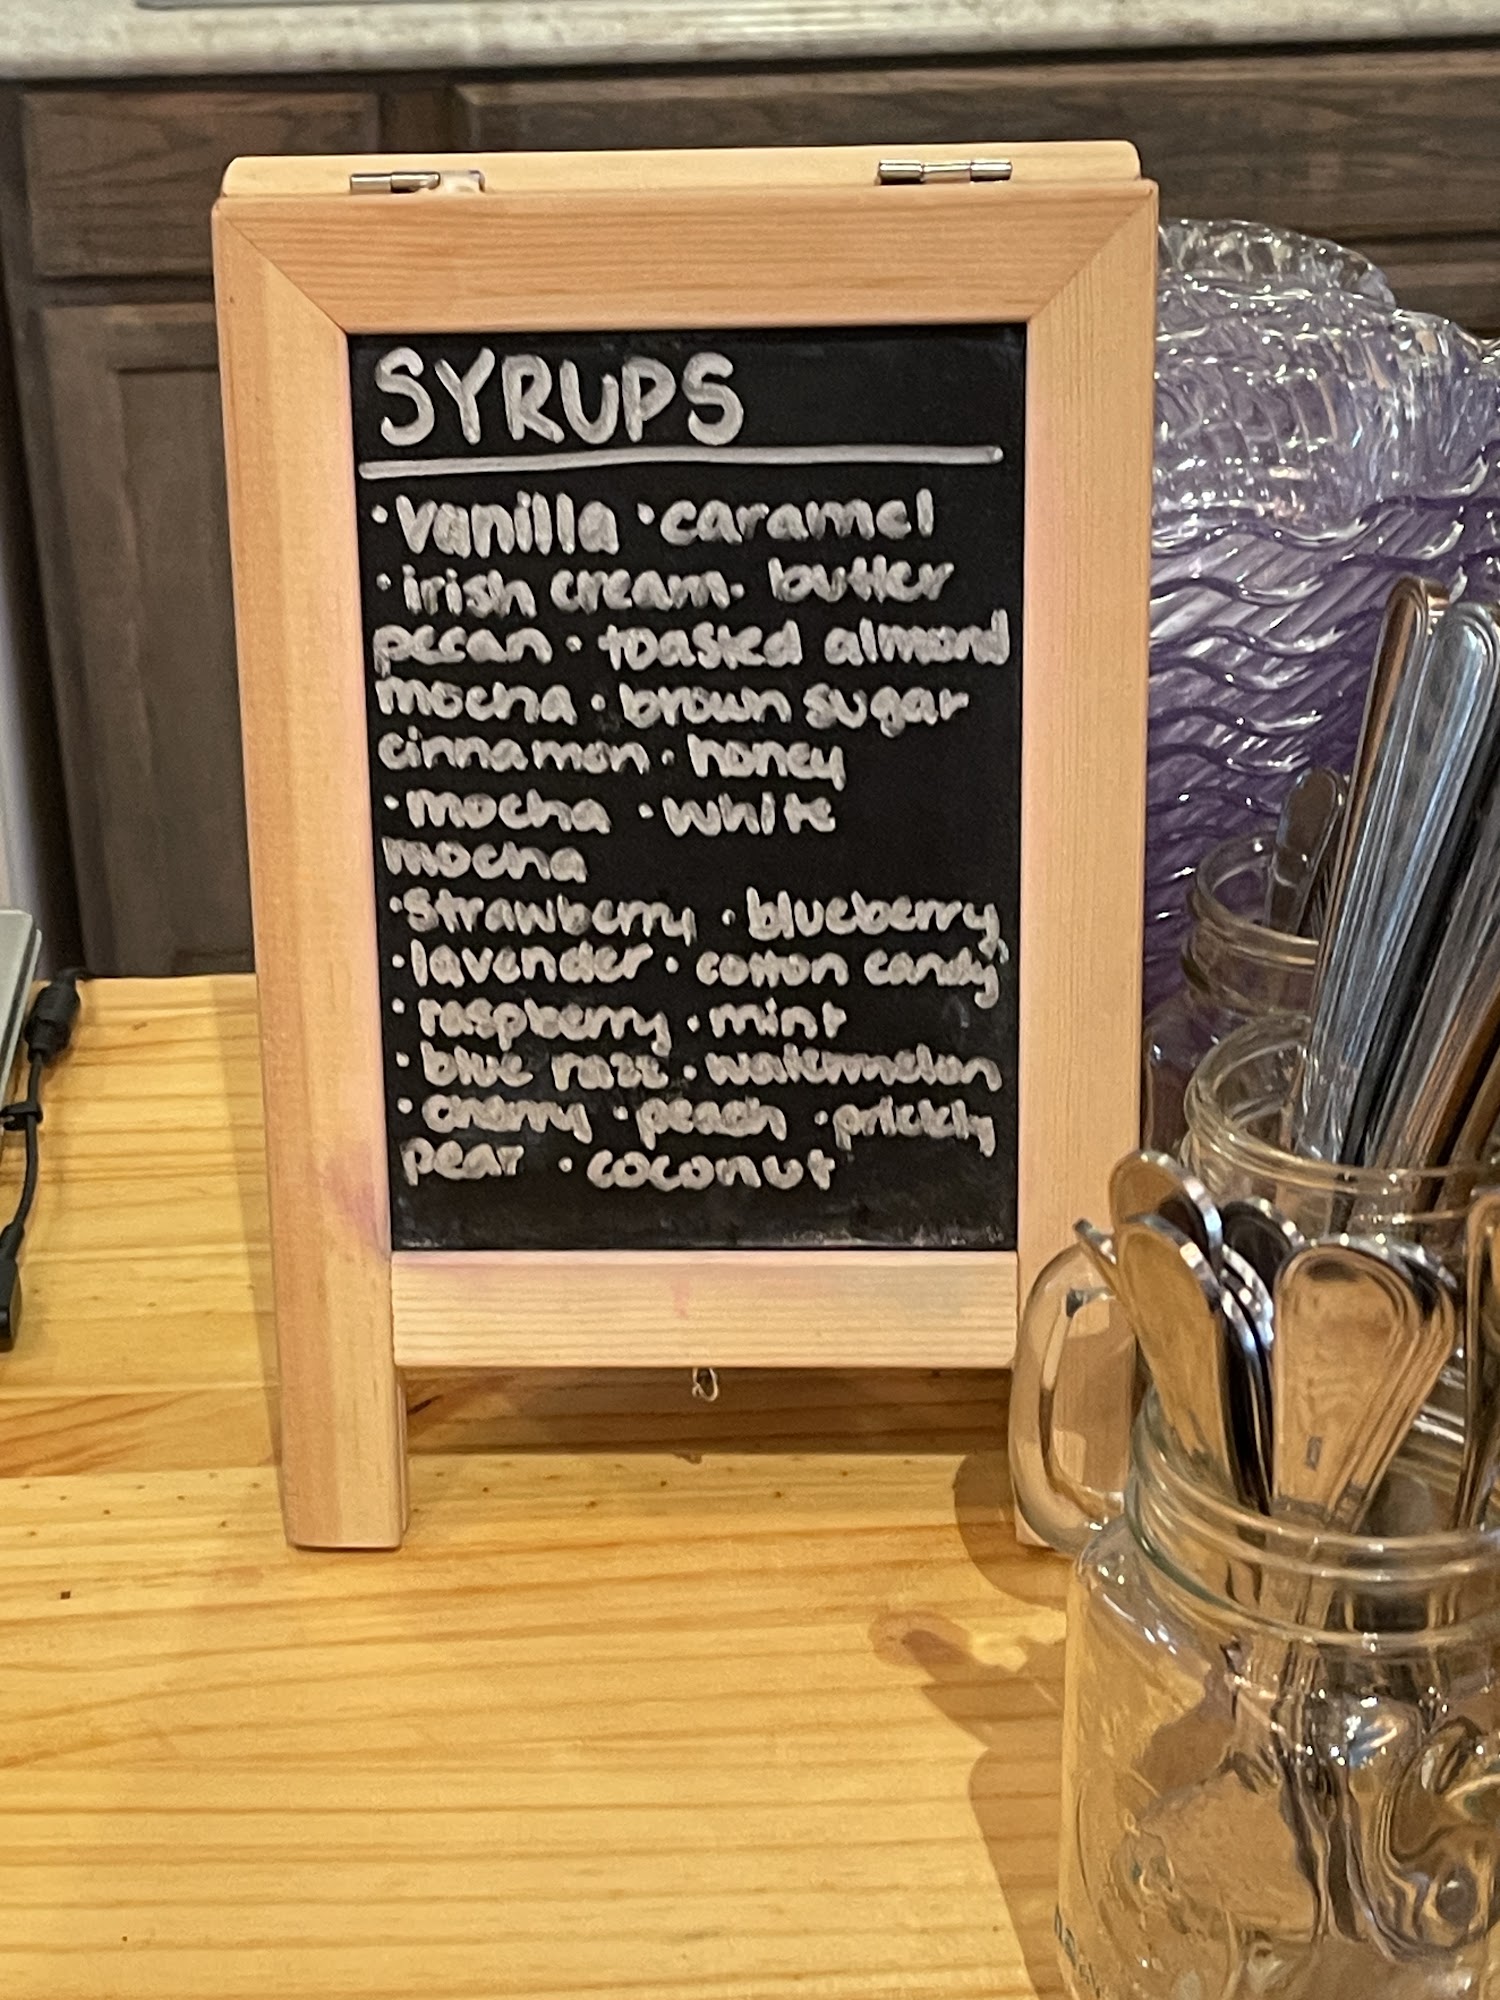 SYRUPS
•vanilla •caramel
•irish cream • butter
pecan • toasted almond
mocha • brown sugar
cinnamon • honey
•mocha •white
mocha
•strawberry •blueberry
•lavender • cotton candy
•raspberry •mint
•blue razz •watermelon
•cherry •peach •prickly
pear •coconut